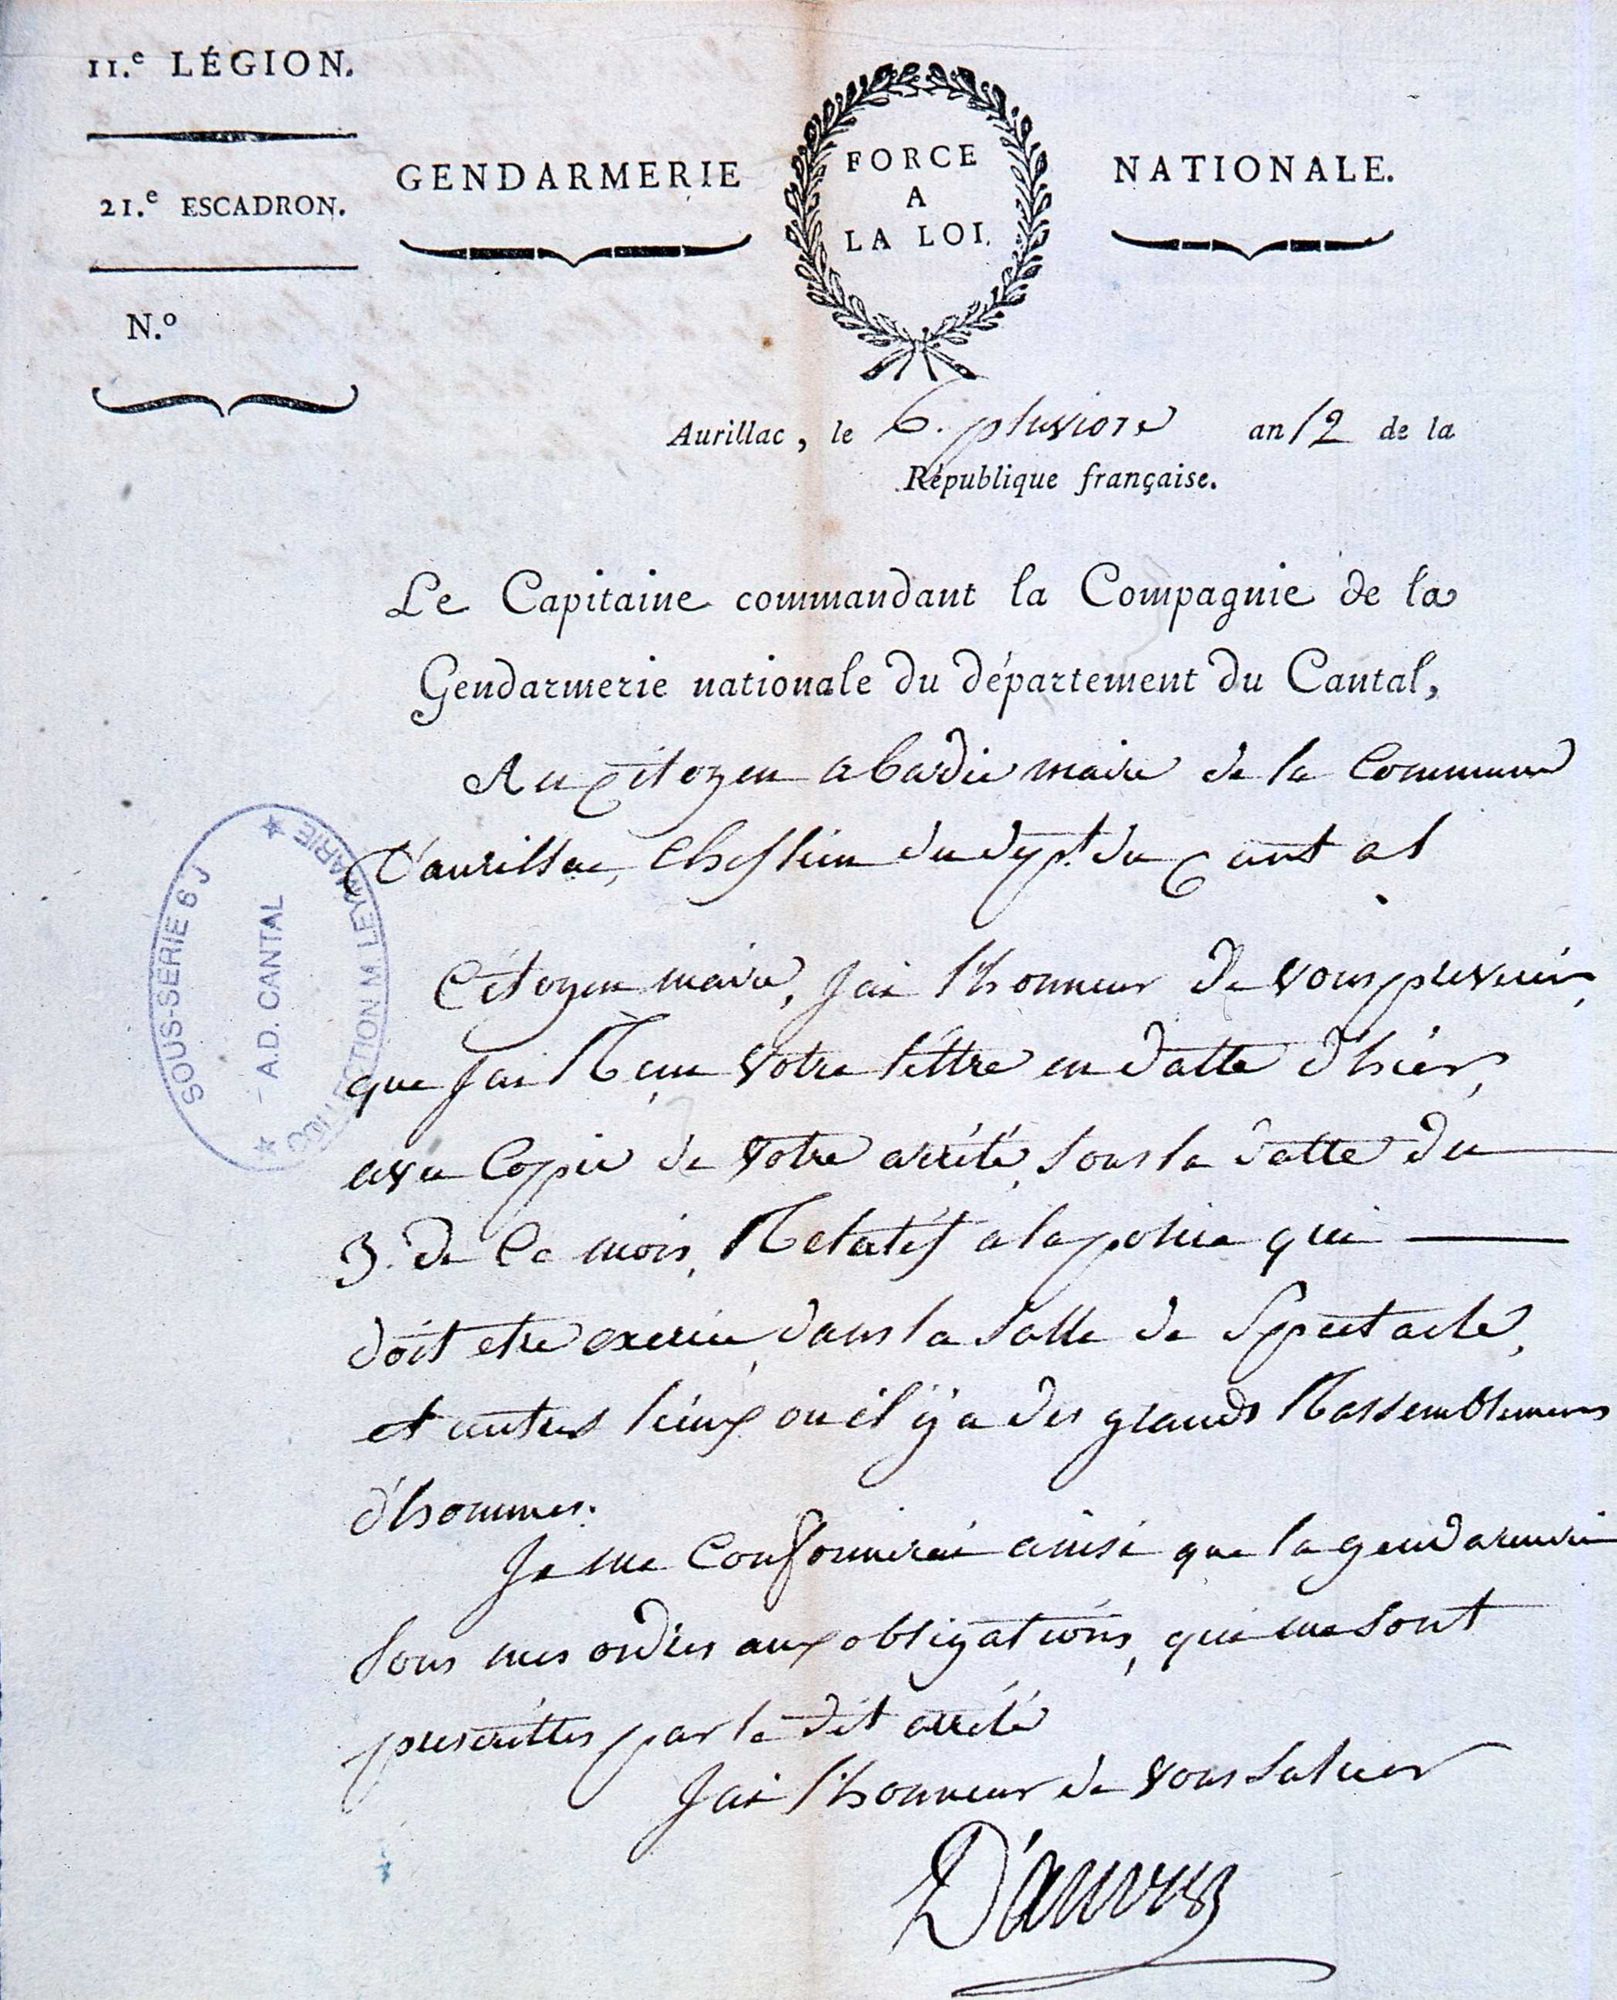 11.e LÉGION.
21.e ESCADRON.
N.o
GENDARMERIE
FORCE
A
LA LOI.
NATIONALE.
Aurillac, le 6. pluviose an 12 de la
République française.
Le Capitaine commandant la Compagnie de la
Gendarmerie nationale du département du Cantal,
Au Citoyen abadie maire de la Commune
d'aurillac, Cheflieu du dept. du Cantal
Citoyen maire, Jai l'honneur de vous prevenir,
que jai Reçu votre lettre en datte d'hier,
avec Copie de votre arrêté, sous la datte du
3. de Ce mois, Relatif a la police qui
doit etre exercée, dans la Salle de Spectacle,
et autres lieux ou il y a des grands Rassemblemens
d'hommes.
Je me Conformerai ainsi que la gendarmerie
sous mes ordres aux obligations, qui me sont
prescrittes par le dit arrêté
Jai l'honneur de vous saluer
SOUS-SERIE 6 J
A.D. CANTAL
COLLECTION M LEYMARIE